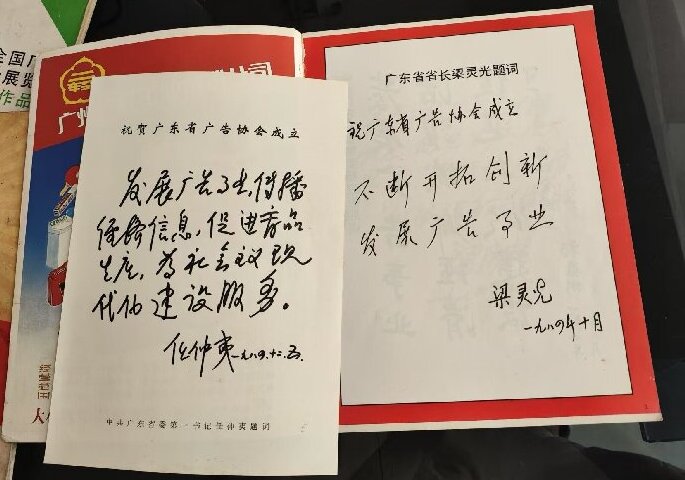 全国广
展览
作品
广州
祝贺广东省广告协会成立
发展广告事业,传播
经济信息,促进商品
生产,为社会主义现
代化建设服务。
任仲夷 一九八四.十二.五.
中共广东省委第一书记任仲夷题词
广东省省长梁灵光题词
祝广东省广告协会成立
不断开拓创新
发展广告事业
梁灵光
一九八四年十月